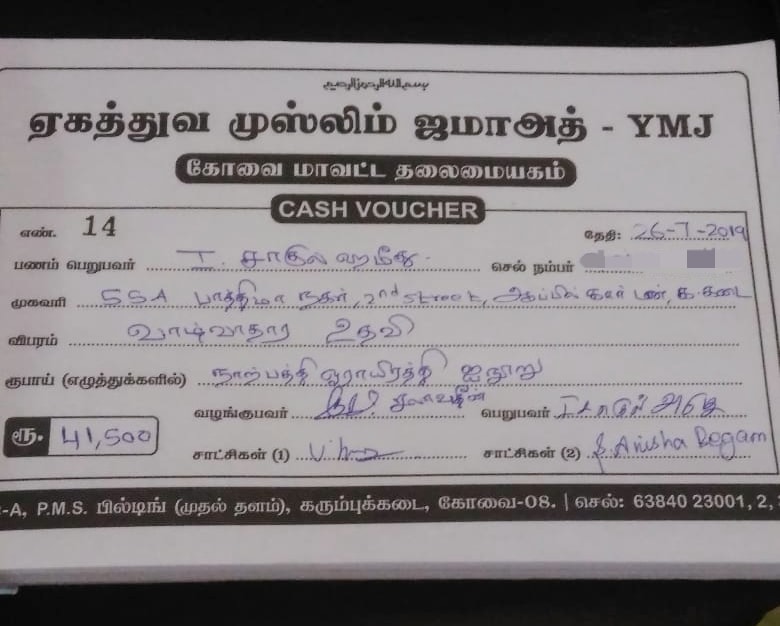 ஏகத்துவ முஸ்லிம் ஜமாஅத் - YMJ
கோவை மாவட்ட தலைமையகம்
CASH VOUCHER
எண். 14 தேதி: 26-7-2019
பணம் பெறுபவர் I. சாகுல ஹமீது. செல் நம்பர்
முகவரி SSA பாத்திமா நகர், 2nd Street,
விபரம் வாழ்வாதார உதவி
ரூபாய் (எழுத்துக்களில்) நாற்பத்தி ஓராயிரத்தி ஐநூறு
வழங்குபவர் பெறுபவர்
ரூ. 41,500
சாட்சிகள் (1) சாட்சிகள் (2) S. Anisha Begam
-A, P.M.S. பில்டிங் (முதல் தளம்), கரும்புக்கடை, கோவை-08. | செல்: 63840 23001, 2,